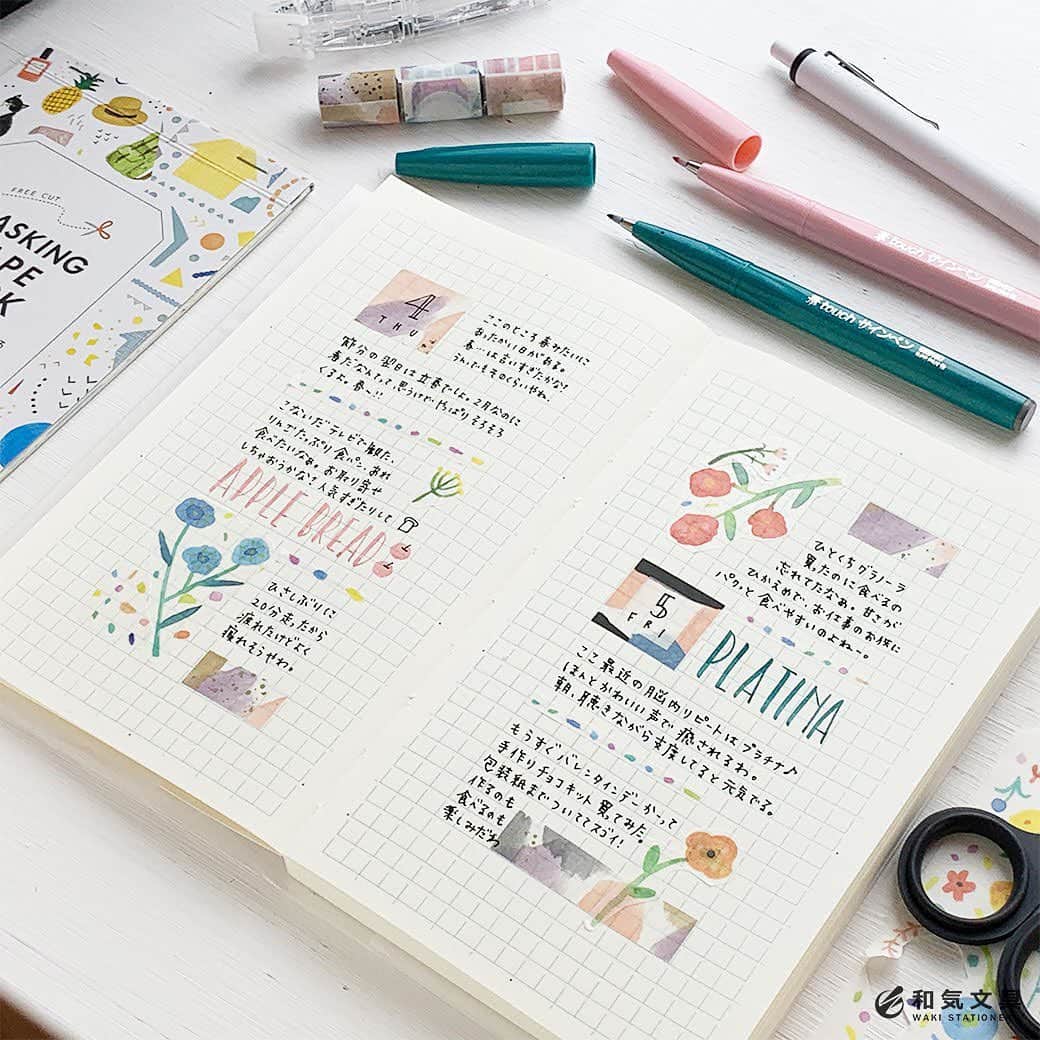 FREE CUT
ASKING
APE
OK
4
THU
ここのところ春みたいに
あったかい日がある。
春…は言いすぎたかな?
うんでもそのくらいやね、
節分の翌日は立春でしょ。2月なのに
春だなんてって思うけど、やっぱりそろそろ
くるよ。春…!!
こないだテレビで観た、
りんごたっぷり食パン、あれ
食べたいなぁ。お取り寄せ
しちゃおうかな?人気すぎたりして
APPLE BREAD
ひさしぶりに
20分走ったから
疲れたけどよく
寝れそうやわ。
ひとくちグラノーラ
買ったのに食べるの
忘れてたなぁ。甘さが
ひかえめで、お仕事のお供に
パクっと食べやすいのよねー。
5
FRI
PLATINA
ここ最近の脳内リピートはプラチナ♪
ほんとかわいい声で癒されるわ。
朝、聴きながら支度してると元気でる。
もうすぐバレンタインデーかって
手作りチョコキット買ってみた。
包装紙までついててスゴイ!
作るのも
食べるのも
楽しみだわ
touch サインペン
touch サインペン
和気文具
WAKI STATIONERY